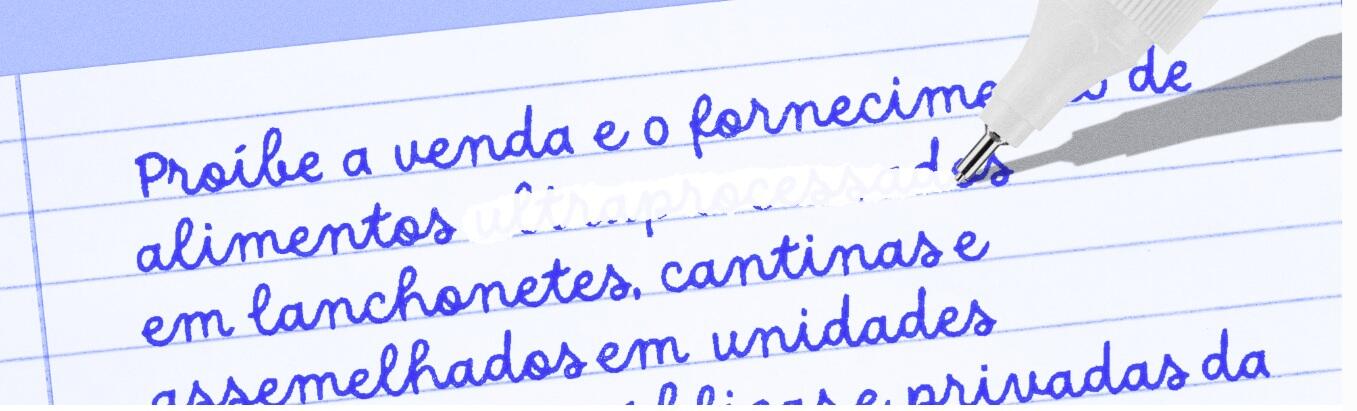 Proíbe a venda e o fornecimento de
alimentos ultraprocessados
em lanchonetes, cantinas e
assemelhados em unidades
e privadas da